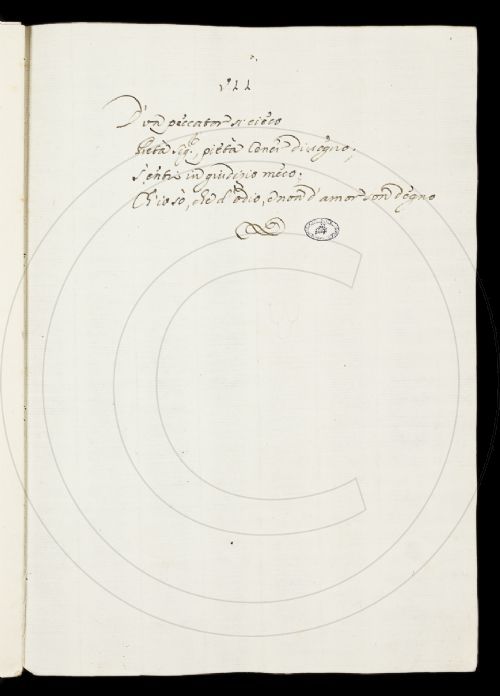 D'un peccator si cieco
Pietà Sig.r, pietà Coner disdegno;
S'entri in giuditio meco;
Ch'io sò, che d'odio, e non d'amor son degno